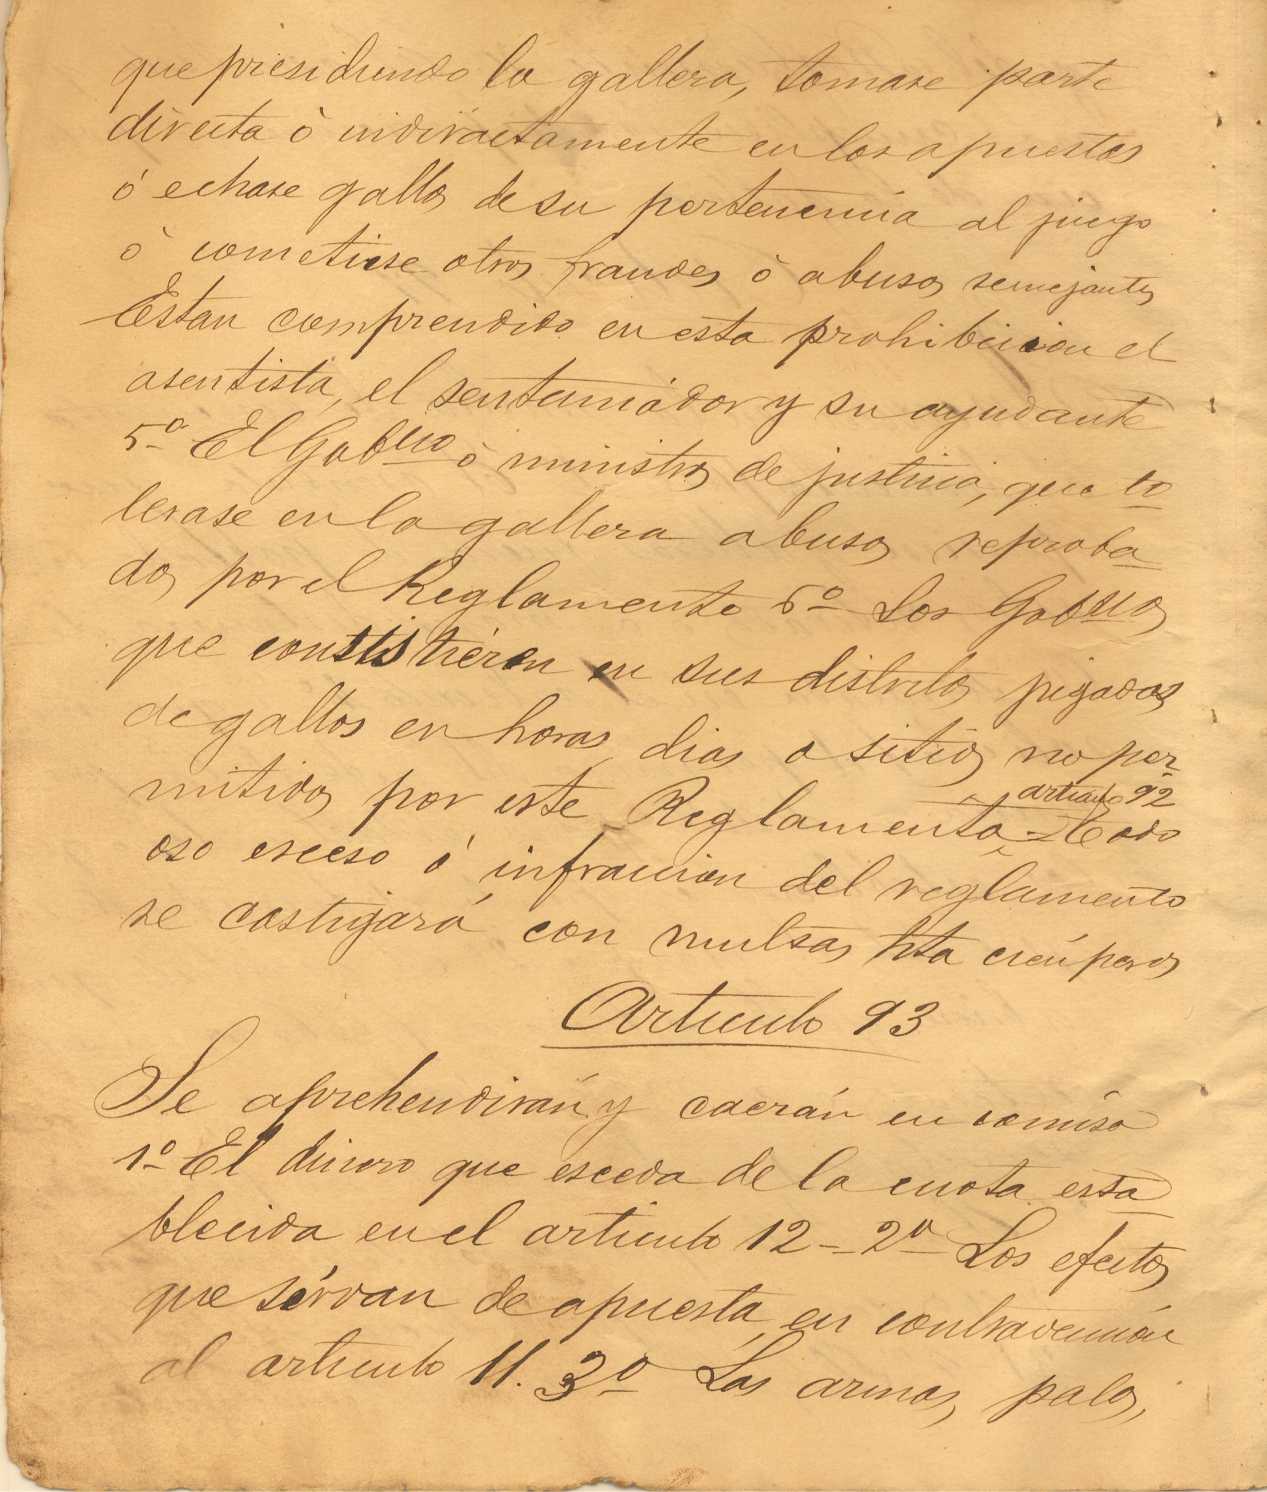 que presidiendo la gallera, tomase parte
directa ò indirectamente en las apuestas
ó echase gallos de su pertenencia al juego
ò cometiese otros fraudes ò abusos semejantes
Estan comprendido en esta prohibicion el
asentista, el sentenciador y su ayudante
5º El Gobcllo ò ministros de justicia, que to
lerase en la gallera abusos reproba
dos por el Reglamento 6º Los Gobcllos
que consistiéren en sus distritos pigadas
de gallos en horas, dias o sitios no per
mitidos por este Reglamento = Todo
articulo 92
oso esceso ó infraccion del reglamento
se castigará con multas hta cien pesos
Articulo 93
Se aprehendirán y caerán en comiso
1º El dinero que esceda de la cuota esta
blecida en el articulo 12 - 2º Los efectos
que sérvan de apuesta, en contravencion
al articulo 11. 3º Las armas, palos,